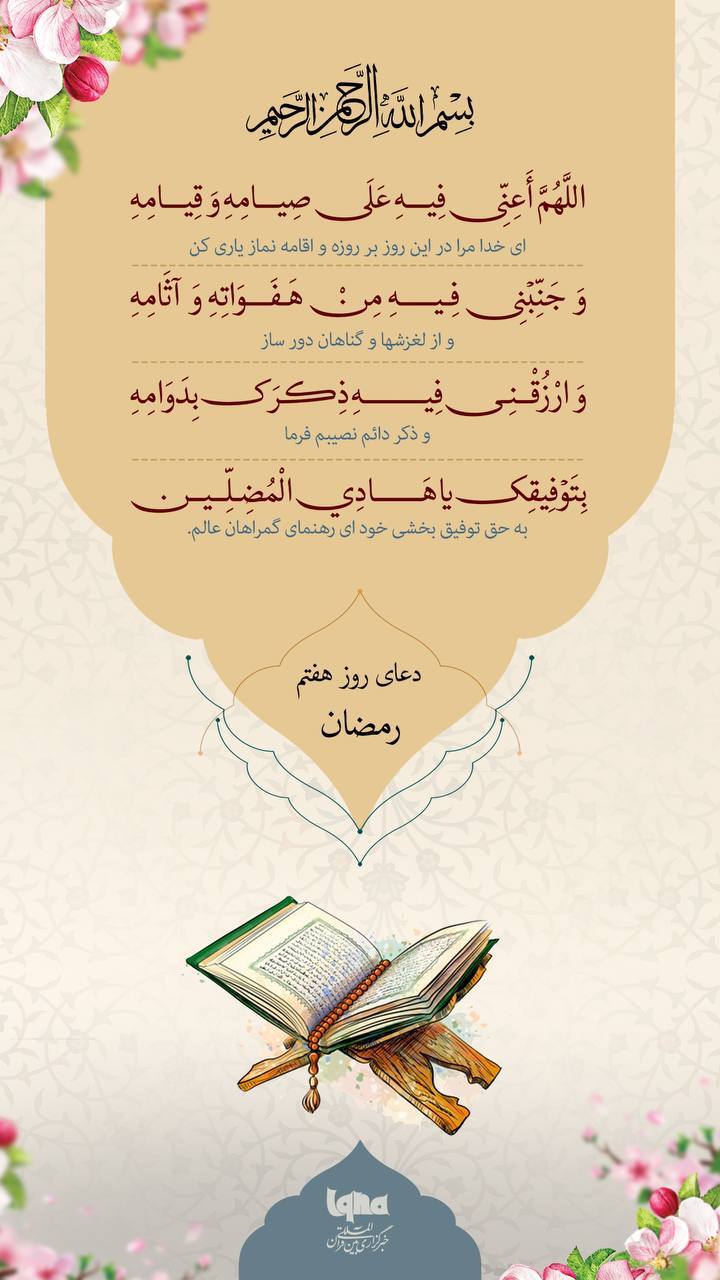 بِسْمِ اللَّهِ الرَّحْمَنِ الرَّحِيمِ
اللَّهُمَّ أَعِنِّی فِیهِ عَلَی صِیامِهِ وَ قِیامِهِ
ای خدا مرا در این روز بر روزه و اقامه نماز یاری کن
وَ جَنِّبْنِی فِیهِ مِنْ هَفَوَاتِهِ وَ آثَامِهِ
و از لغزشها و گناهان دور ساز
وَ ارْزُقْنِی فِیهِ ذِکرَک بِدَوَامِهِ
و ذکر دائم نصیبم فرما
بِتَوْفِیقِک یا هَادِي الْمُضِلِّین
به حق توفیق بخشی خود ای رهنمای گمراهان عالم.
دعای روز هفتم
رمضان
Iqna
خبرگزاری بین المللی قرآن